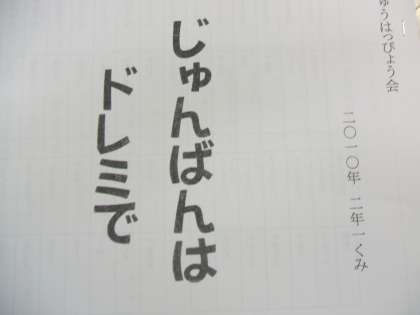 ゅうはっぴょう会
二〇一〇年 二年一くみ
じゅんばんは
ドレミで